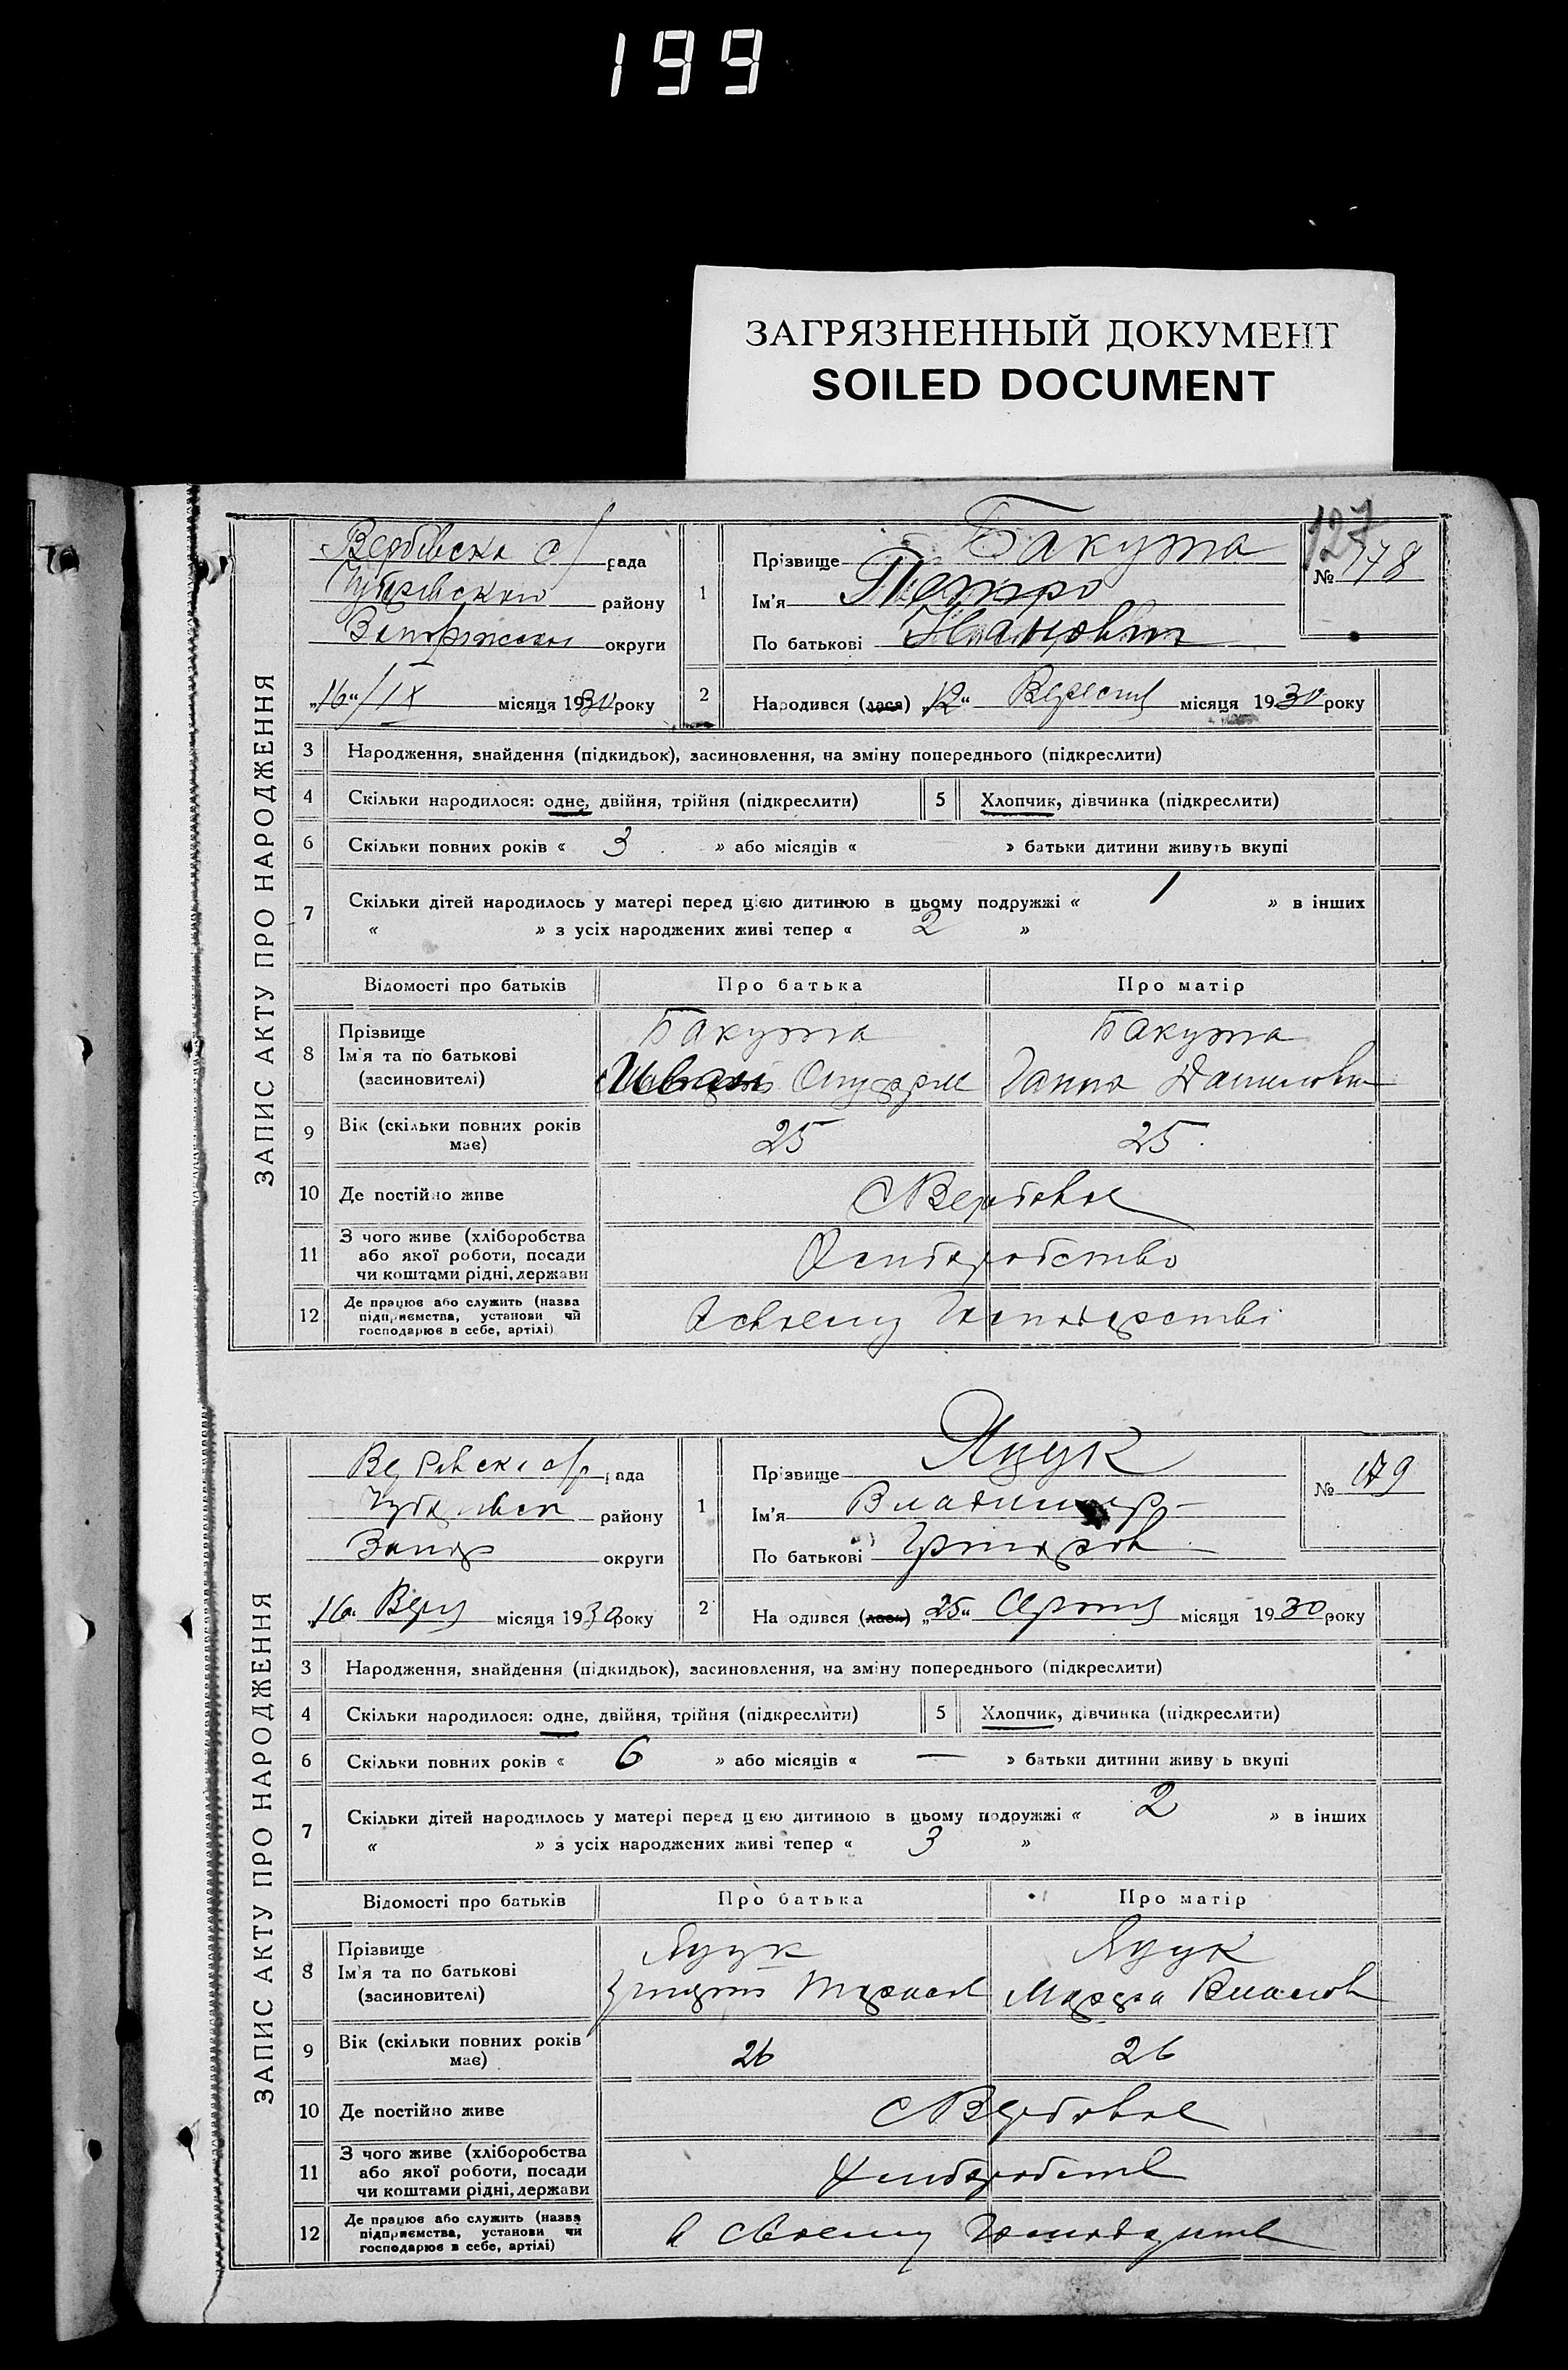 199
ЗАГРЯЗНЕННЫЙ ДОКУМЕНТ
SOILED DOCUMENT
127
ЗАПИС АКТУ ПРО НАРОДЖЕННЯ
Вербівська с/ рада
району
округи
„16“/IX місяця 1930 року
1
Прізвище Бакута
Ім'я Петро
По батькові Иванович
№ 178
2
Народився (лася) „12“ Вересня місяця 1930 року
3 Народження, знайдення (підкидьок), засиновлення, на зміну попереднього (підкреслити)
4 Скільки народилося: одне, двійня, трійня (підкреслити) 5 Хлопчик, дівчинка (підкреслити)
6 Скільки повних років « 3 » або місяців « » батьки дитини живуть вкупі
7 Скільки дітей народилось у матері перед цією дитиною в цьому подружжі « 1 » в інших
« » з усіх народжених живі тепер « 2 »
Відомості про батьків Про батька Про матір
8 Прізвище Бакута Бакута
Ім'я та по батькові
(засиновителі) Иван Ганна Данилови
9 Вік (скільки повних років має) 25 25
10 Де постійно живе с Вербовое
11 З чого живе (хліборобства
або якої роботи, посади
чи коштами рідні, держави
Хлиборобство
12 Де працює або служить (назва
підприємства, установи чи
господарює в себе, артілі)
В своему Господарстві
ЗАПИС АКТУ ПРО НАРОДЖЕННЯ
Вербівська с/р рада
району
Запор округи
„16“ Вер місяця 1930 року
1
Прізвище Яцук
Ім'я Владимир
По батькові Григоров
№ 179
2
Народився (лася) „25“ Серпня місяця 1930 року
3 Народження, знайдення (підкидьок), засиновлення, на зміну попереднього (підкреслити)
4 Скільки народилося: одне, двійня, трійня (підкреслити) 5 Хлопчик, дівчинка (підкреслити)
6 Скільки повних років « 6 » або місяців « — » батьки дитини живуть вкупі
7 Скільки дітей народилось у матері перед цією дитиною в цьому подружжі « 2 » в інших
« » з усіх народжених живі тепер « 3 »
Відомості про батьків Про батька Про матір
8 Прізвище Яцук Яцук
Ім'я та по батькові
(засиновителі) Тарасов Власов
9 Вік (скільки повних років має) 26 26
10 Де постійно живе с Вербовое
11 З чого живе (хліборобства
або якої роботи, посади
чи коштами рідні, держави
Хлиборобств
12 Де працює або служить (назва
підприємства, установи чи
господарює в себе, артілі)
в своему